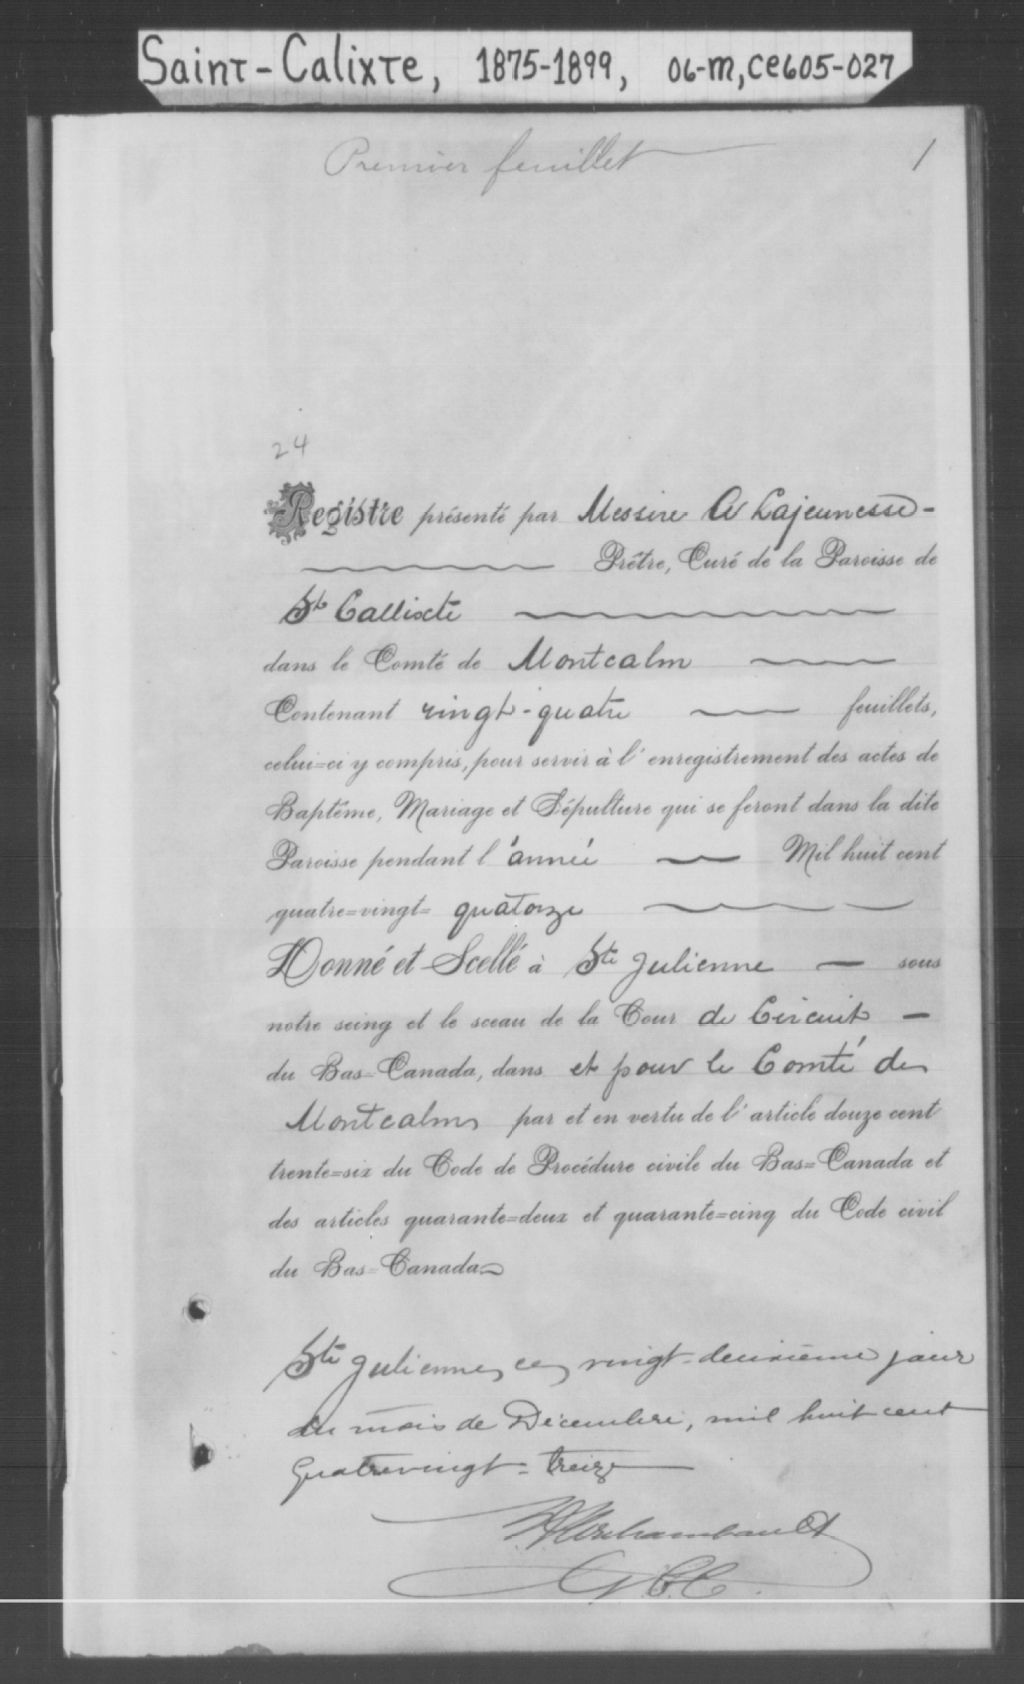 Saint-Calixte, 1875-1899, 06-M, CE605-027
Premier feuillet 1
24
Registre présenté par Messire A Lajeunesse -
Prêtre, Curé de la Paroisse de
St Callixte
dans le Comté de Montcalm
Contenant vingt-quatre feuillets,
celui=ci y compris, pour servir à l'enregistrement des actes de
Baptême, Mariage et Sépulture qui se feront dans la dite
Paroisse pendant l'année Mil huit cent
quatre=vingt= quatorze
Donné et Scellé à Ste Julienne — sous
notre seing et le sceau de la Cour de Circuit —
du Bas=Canada, dans et pour le Comté de
Montcalm par et en vertu de l'article douze cent
trente=six du Code de Procédure civile du Bas=Canada et
des articles quarante=deux et quarante=cinq du Code civil
du Bas=Canada
Ste Julienne, ce vingt-deuxième jour
du mois de Décembre, mil huit cent
Quatrevingt-treize
Archambault
G.C.C.